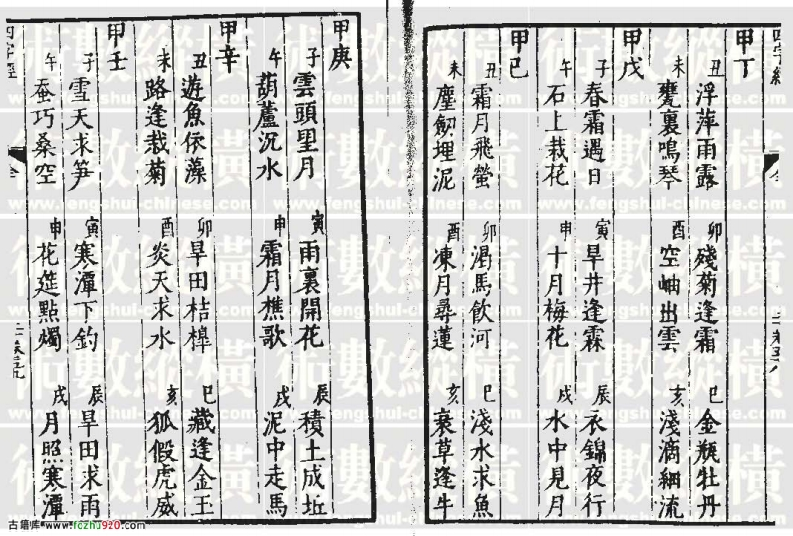 四字經
甲丁
丑 浮萍雨露 卯 殘菊逢霜 巳 金瓶牡丹
未 甕裏鳴琴 酉 空岫出雲 亥 淺滴細流
甲戊
子 春霜遇日 寅 旱井逢霖 辰 衣錦夜行
午 石上栽花 申 十月梅花 戌 水中見月
甲己
丑 霜月飛螢 卯 渴馬飲河 巳 淺水求魚
未 塵劒埋泥 酉 凍月尋蓮 亥 衰草逢牛
甲庚
子 雲頭望月 寅 雨裏開花 辰 積土成坵
午 葫蘆沉水 申 霜月樵歌 戌 泥中走馬
甲辛
丑 遊魚依藻 卯 旱田桔槔 巳 藏逢金玉
未 路逢栽菊 酉 炎天求水 亥 狐假虎威
甲壬
子 雪天求笋 寅 寒潭下釣 辰 旱田求雨
午 蚕巧桑空 申 花筵點燭 戌 月照寒潭
四字經
術數縱橫
www.fengshui-chinese.com
古籍库 www.fczhu920.com